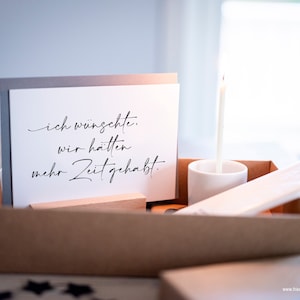 ich wünschte,
wir hätten
mehr Zeit gehabt.